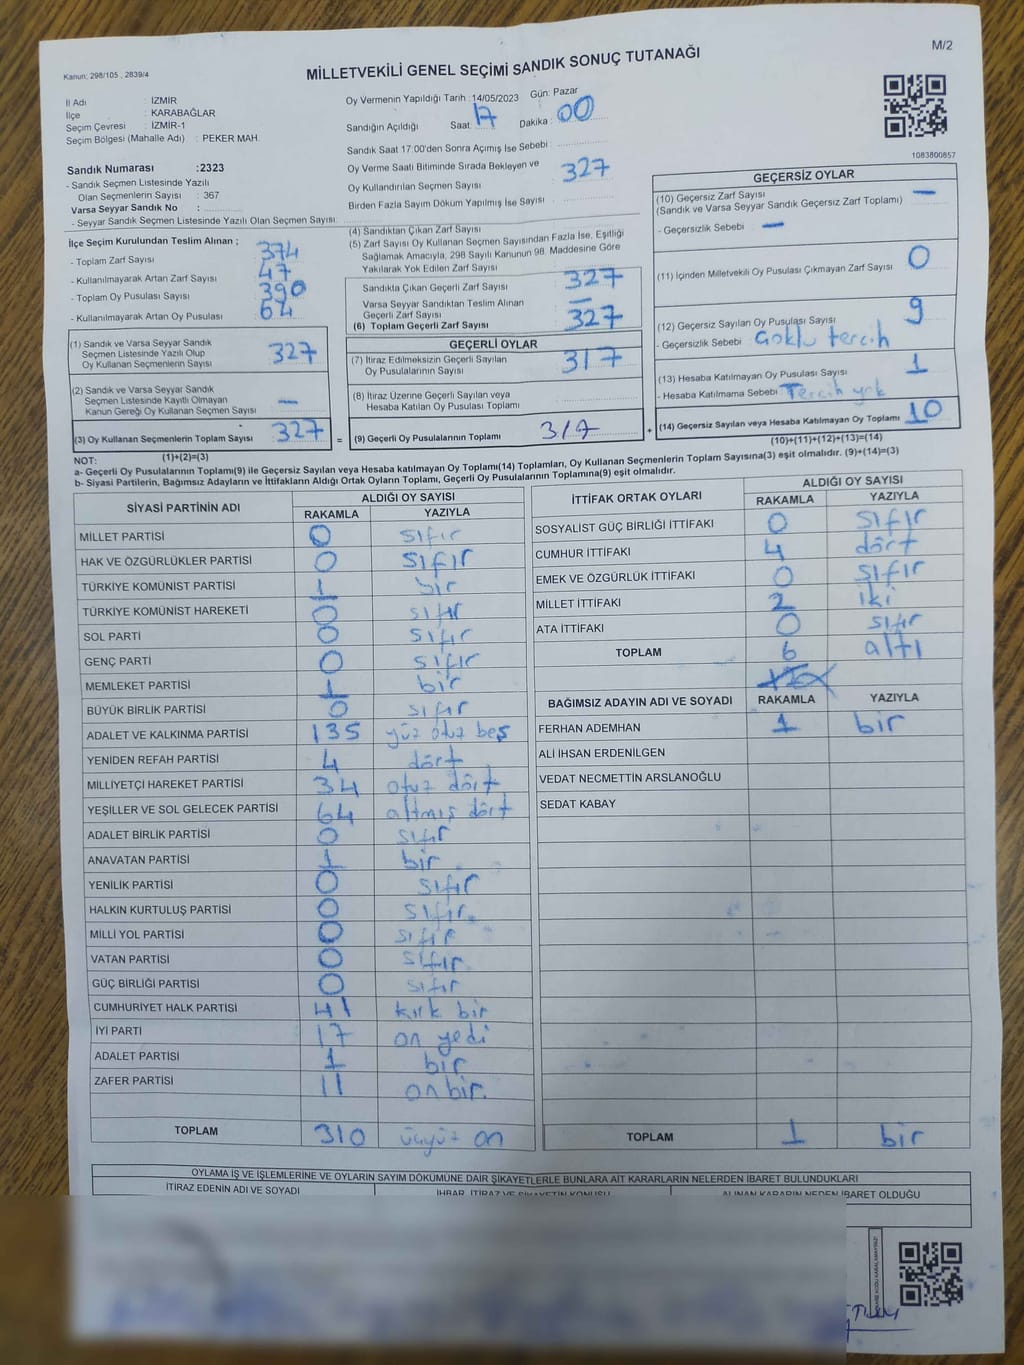 M/2
Kanun; 298/105 , 2839/4
MİLLETVEKİLİ GENEL SEÇİMİ SANDIK SONUÇ TUTANAĞI
İl Adı : İZMİR
İlçe : KARABAĞLAR
Seçim Çevresi : İZMİR-1
Seçim Bölgesi (Mahalle Adı) : PEKER MAH.
Oy Vermenin Yapıldığı Tarih :14/05/2023 Gün: Pazar
Sandığın Açıldığı Saat: 17 Dakika : 00
Sandık Saat 17:00'den Sonra Açımış İse Sebebi:
1083800857
Sandık Numarası :2323
- Sandık Seçmen Listesinde Yazılı
Olan Seçmenlerin Sayısı : 367
Varsa Seyyar Sandık No :
- Seyyar Sandık Seçmen Listesinde Yazılı Olan Seçmen Sayısı:
Oy Verme Saati Bitiminde Sırada Bekleyen ve
Oy Kullandırılan Seçmen Sayısı 327
Birden Fazla Sayım Döküm Yapılmış İse Sayısı
İlçe Seçim Kurulundan Teslim Alınan ;
- Toplam Zarf Sayısı 374
- Kullanılmayarak Artan Zarf Sayısı 47
- Toplam Oy Pusulası Sayısı 390
- Kullanılmayarak Artan Oy Pusulası 64
(1) Sandık ve Varsa Seyyar Sandık
Seçmen Listesinde Yazılı Olup
Oy Kullanan Seçmenlerin Sayısı 327
(2) Sandık ve Varsa Seyyar Sandık
Seçmen Listesinde Kayıtlı Olmayan
Kanun Gereği Oy Kullanan Seçmen Sayısı —
(3) Oy Kullanan Seçmenlerin Toplam Sayısı 327
(1)+(2)=(3)
(4) Sandıktan Çıkan Zarf Sayısı
(5) Zarf Sayısı Oy Kullanan Seçmen Sayısından Fazla İse, Eşitliği
Sağlamak Amacıyla, 298 Sayılı Kanunun 98. Maddesine Göre
Yakılarak Yok Edilen Zarf Sayısı
Sandıkla Çıkan Geçerli Zarf Sayısı 327
Varsa Seyyar Sandıktan Teslim Alınan
Geçerli Zarf Sayısı —
(6) Toplam Geçerli Zarf Sayısı 327
GEÇERLİ OYLAR
(7) İtiraz Edilmeksizin Geçerli Sayılan
Oy Pusulalarının Sayısı 317
(8) İtiraz Üzerine Geçerli Sayılan veya
Hesaba Katılan Oy Pusulası Toplamı
= (9) Geçerli Oy Pusulalarının Toplamı 317 +
GEÇERSİZ OYLAR
(10) Geçersiz Zarf Sayısı —
(Sandık ve Varsa Seyyar Sandık Geçersiz Zarf Toplamı)
- Geçersizlik Sebebi : —
(11) İçinden Milletvekili Oy Pusulası Çıkmayan Zarf Sayısı 0
(12) Geçersiz Sayılan Oy Pusulası Sayısı 9
- Geçersizlik Sebebi : Çoklu tercih
(13) Hesaba Katılmayan Oy Pusulası Sayısı 1
- Hesaba Katılmama Sebebi : Tercih yok
(14) Geçersiz Sayılan veya Hesaba Katılmayan Oy Toplamı 10
(10)+(11)+(12)+(13)=(14)
NOT:
a- Geçerli Oy Pusulalarının Toplamı(9) ile Geçersiz Sayılan veya Hesaba katılmayan Oy Toplamı(14) Toplamları, Oy Kullanan Seçmenlerin Toplam Sayısına(3) eşit olmalıdır. (9)+(14)=(3)
b- Siyasi Partilerin, Bağımsız Adayların ve İttifakların Aldığı Ortak Oyların Toplamı, Geçerli Oy Pusulalarının Toplamına(9) eşit olmalıdır.
SİYASİ PARTİNİN ADI ALDIĞI OY SAYISI
RAKAMLA YAZIYLA
MİLLET PARTİSİ 0 sıfır
HAK VE ÖZGÜRLÜKLER PARTİSİ 0 sıfır
TÜRKİYE KOMÜNİST PARTİSİ 1 bir
TÜRKİYE KOMÜNİST HAREKETİ 0 sıfır
SOL PARTİ 0 sıfır
GENÇ PARTİ 0 sıfır
MEMLEKET PARTİSİ 1 bir
BÜYÜK BİRLİK PARTİSİ 0 sıfır
ADALET VE KALKINMA PARTİSİ 135 yüz otuz beş
YENİDEN REFAH PARTİSİ 4 dört
MİLLİYETÇİ HAREKET PARTİSİ 34 otuz dört
YEŞİLLER VE SOL GELECEK PARTİSİ 64 altmış dört
ADALET BİRLİK PARTİSİ 0 sıfır
ANAVATAN PARTİSİ 1 bir
YENİLİK PARTİSİ 0 sıfır
HALKIN KURTULUŞ PARTİSİ 0 sıfır
MİLLİ YOL PARTİSİ 0 sıfır
VATAN PARTİSİ 0 sıfır
GÜÇ BİRLİĞİ PARTİSİ 0 sıfır
CUMHURİYET HALK PARTİSİ 41 kırk bir
İYİ PARTİ 17 on yedi
ADALET PARTİSİ 1 bir
ZAFER PARTİSİ 11 on bir.
TOPLAM 310 üçyüz on
İTTİFAK ORTAK OYLARI ALDIĞI OY SAYISI
RAKAMLA YAZIYLA
SOSYALİST GÜÇ BİRLİĞİ İTTİFAKI 0 sıfır
CUMHUR İTTİFAKI 4 dört
EMEK VE ÖZGÜRLÜK İTTİFAKI 0 sıfır
MİLLET İTTİFAKI 2 iki
ATA İTTİFAKI 0 sıfır
TOPLAM 6 altı
BAĞIMSIZ ADAYIN ADI VE SOYADI RAKAMLA YAZIYLA
FERHAN ADEMHAN 1 bir
ALİ İHSAN ERDENİLGEN
VEDAT NECMETTİN ARSLANOĞLU
SEDAT KABAY
TOPLAM 1 bir
OYLAMA İŞ VE İŞLEMLERİNE VE OYLARIN SAYIM DÖKÜMÜNE DAİR ŞİKAYETLERLE BUNLARA AİT KARARLARIN NELERDEN İBARET BULUNDUKLARI
İTİRAZ EDENİN ADI VE SOYADI İHBAR, İTİRAZ VE ŞİKAYETİN KONUSU ALINAN KARARIN NEDEN İBARET OLDUĞU